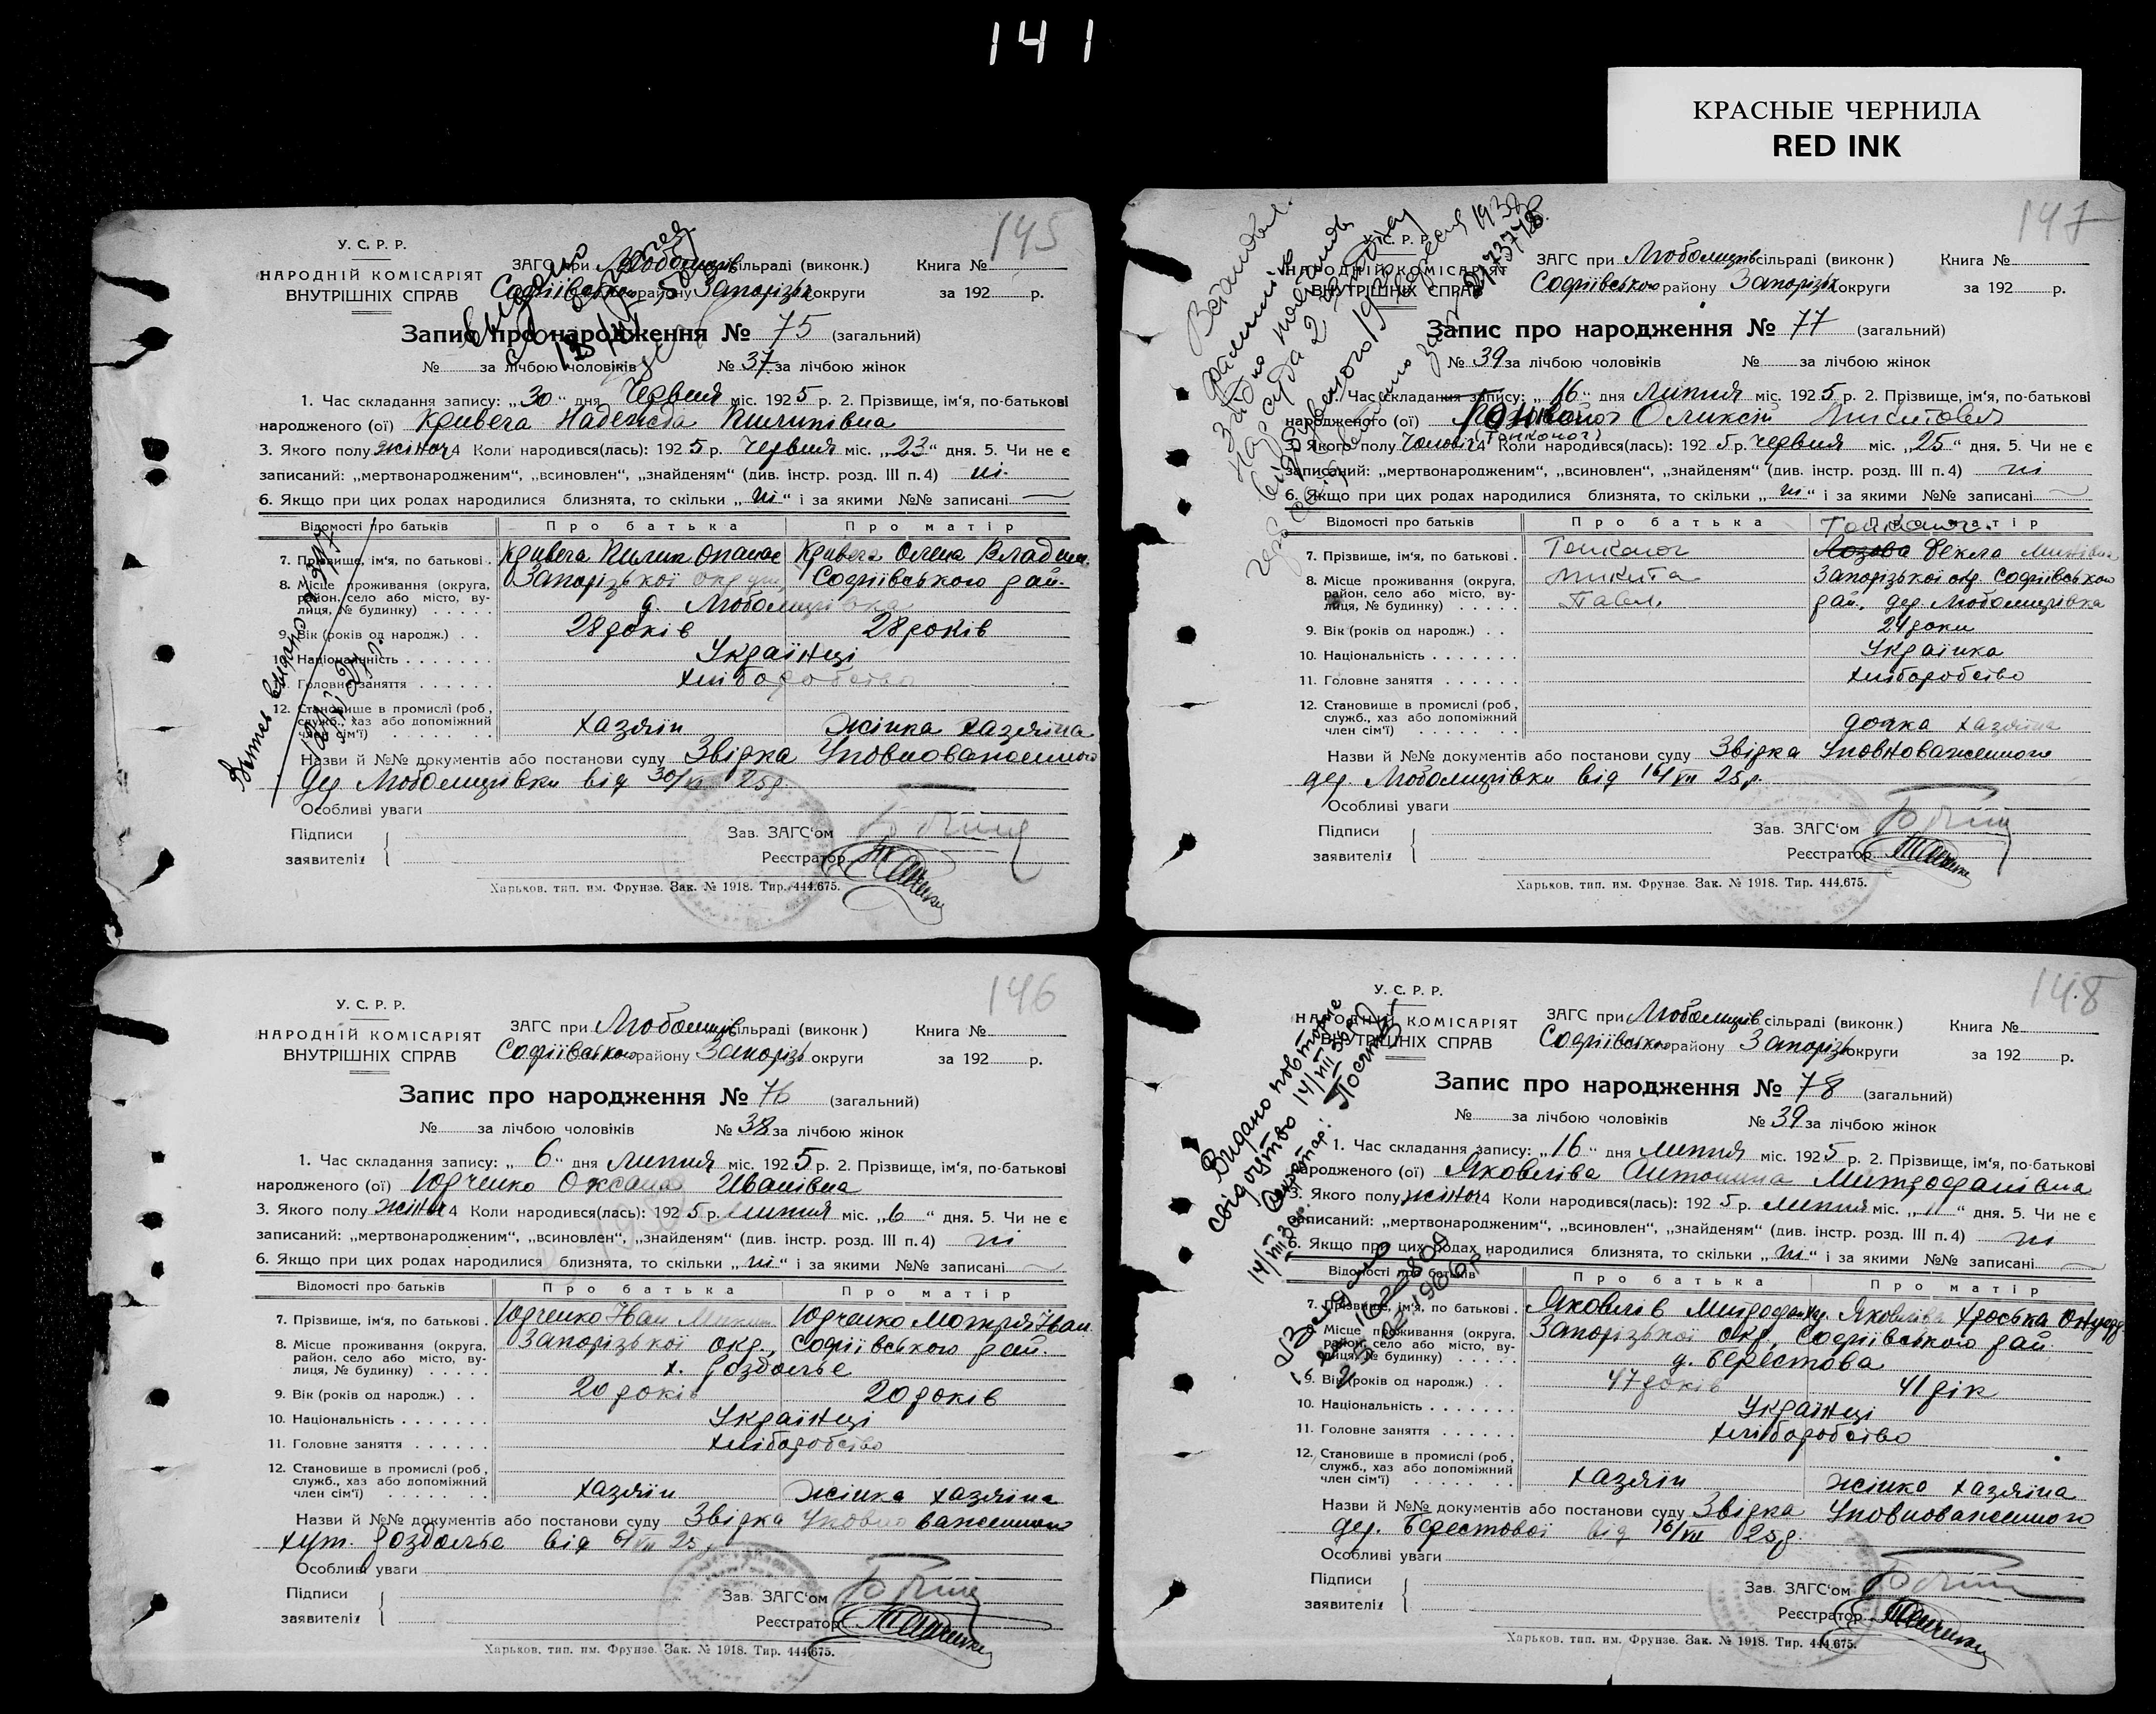 141
КРАСНЫЕ ЧЕРНИЛА
RED INK
145
У. С. Р. Р.
НАРОДНІЙ КОМІСАРІЯТ
ВНУТРІШНІХ СПРАВ
ЗАГС при Любомирів сільраді (виконк.) Книга №
Софіївського району Запорізь округи за 192 р.
Запис про народження № 75 (загальний)
№ за лічбою чоловіків № 37 за лічбою жінок
1. Час складання запису: „30“ дня Червня міс. 1925 р. 2. Прізвище, ім'я, по-батькові
народженого (ої) Кривега Надежда Пилипівна
3. Якого полу жіноч 4 Коли народився(лась): 1925 р. Червня міс. „23“ дня. 5. Чи не є
записаний: „мертвонародженим“, „всиновлен“, „знайденям“ (див. інстр. розд. III п. 4) ні
6. Якщо при цих родах народилися близнята, то скільки „ні“ і за якими №№ записані
Відомості про батьків Про батька Про матір
7. Прізвище, ім'я, по батькові . Кривега Пилип Опанас Кривега Олена
8. Місце проживання (округа, район, село або місто, вулиця, № будинку) Запорізької окр Софіївського рай.
д. Любомирівка
9. Вік (років од народж.) . . 28 років 28 років
10. Національність Українці
11. Головне заняття хліборобство
12. Становище в промислі (роб., служб., хаз або допоміжний член сім'ї) хазяїн жінка хазяїна
Назви й №№ документів або постанови суду Звірка Уповноваженного
дер Любомирівки від 30/VI 25р.
Особливі уваги
Підписи
заявителів
Зав. ЗАГС'ом
Реєстратор
Харьков. тип. им. Фрунзе. Зак. № 1918. Тир. 444.675.
147
У. С. Р. Р.
НАРОДНІЙ КОМІСАРІЯТ
ВНУТРІШНІХ СПРАВ
ЗАГС при Любомирів сільраді (виконк) Книга №
Софіївського району Запорізьк округи за 192 р.
Запис про народження № 77 (загальний)
№ 39 за лічбою чоловіків № за лічбою жінок
1. Час складання запису: „16“ дня Липня міс. 1925 р. 2. Прізвище, ім'я, по-батькові
народженого (ої) Тонконог Оликсій Микитович
(Тонконог)
3. Якого полу Чоловіч 4 Коли народився(лась): 1925 р. Червня міс. „25“ дня. 5. Чи не є
записаний: „мертвонародженим“, „всиновлен“, „знайденям“ (див. інстр. розд. III п. 4) ні
6. Якщо при цих родах народилися близнята, то скільки „ні“ і за якими №№ записані
Відомості про батьків Про батька Про матір
Тонконог
7. Прізвище, ім'я, по батькові . Тонконог Лозова Векла
8. Місце проживання (округа, район, село або місто, вулиця, № будинку) Микита Павл. Запорізької окр. Софіївського
рай. дер. Любомирівка
9. Вік (років од народж.) . . 24 роки
10. Національність Українка
11. Головне заняття хліборобство
12. Становище в промислі (роб, служб., хаз або допоміжний член сім'ї) дочка хазяїна
Назви й №№ документів або постанови суду Звірка Уповноваженного
дер. Любомирівки від 16/VII 25р.
Особливі уваги
Підписи
заявителів
Зав. ЗАГС'ом
Реєстратор
Харьков. тип. им. Фрунзе. Зак. № 1918. Тир. 444.675.
146
У. С. Р. Р.
НАРОДНІЙ КОМІСАРІЯТ
ВНУТРІШНІХ СПРАВ
ЗАГС при Любомирів сільраді (виконк) Книга №
Софіївського району Запорізь округи за 192 р.
Запис про народження № 76 (загальний)
№ за лічбою чоловіків № 38 за лічбою жінок
1. Час складання запису: „6“ дня Липня міс. 1925 р. 2. Прізвище, ім'я, по-батькові
народженого (ої) Юрченко Оксана Иванівна
3. Якого полу жіноч 4 Коли народився(лась): 1925 р. Липня міс. „6“ дня. 5. Чи не є
записаний: „мертвонародженим“, „всиновлен“, „знайденям“ (див. інстр. розд. III п. 4) ні
6. Якщо при цих родах народилися близнята, то скільки „ні“ і за якими №№ записані
Відомості про батьків Про батька Про матір
7. Прізвище, ім'я, по батькові . Юрченко Иван Юрченко Мотря Иван.
8. Місце проживання (округа, район. село або місто, вулиця, № будинку) Запорізької окр., Софіївського рай.
х. Роздолье
9. Вік (років од народж.) . . 20 років 20 років
10. Національність Українці
11. Головне заняття хліборобство
12. Становище в промислі (роб, служб., хаз або допоміжний член сім'ї) хазяїн жінка хазяїна
Назви й №№ документів або постанови суду Звірка Уповноваженного
хут. Роздолье від 6/VII 25
Особливі уваги
Підписи
заявителів
Зав. ЗАГС'ом
Реєстратор
Харьков. тип. им. Фрунзе. Зак. № 1918. Тир. 444.675.
148
У. С. Р. Р.
НАРОДНІЙ КОМІСАРІЯТ
ВНУТРІШНІХ СПРАВ
Видано повторне
свідоцтво 14/VII
ЗАГС при Любомирів сільраді (виконк.) Книга №
Софіївського району Запорізь округи за 192 р.
Запис про народження № 78 (загальний)
№ за лічбою чоловіків № 39 за лічбою жінок
1. Час складання запису: „16“ дня Липня міс. 1925 р. 2. Прізвище, ім'я, по-батькові
народженого (ої) Яковліва Антонина Митрофанівна
3. Якого полу жіноч 4 Коли народився(лась): 1925 р. Липня міс. „11“ дня. 5. Чи не є
записаний: „мертвонародженим“, „всиновлен“, „знайденям“ (див. інстр. розд. III п. 4) ні
6. Якщо при цих родах народилися близнята, то скільки „ні“ і за якими №№ записані
Відомості про батьків Про батька Про матір
7. Прізвище, ім'я, по батькові . Яковлів Митрофан Яковліва Хроська
8. Місце проживання (округа, район, село або місто, вулиця, № будинку) Запорізької окр, Софіївського рай.
д. Берестова
9. Вік (років од народж.) . . 47 років 41 рік
10. Національність Українці
11. Головне заняття хліборобство
12. Становище в промислі (роб, служб., хаз або допоміжний член сім'ї) хазяїн жінка хазяїна
Назви й №№ документів або постанови суду Звірка Уповноваженного
дер. Берестової від 16/VII 25р.
Особливі уваги
Підписи
заявителів
Зав. ЗАГС'ом
Реєстратор
Харьков. тип. им. Фрунзе. Зак. № 1918. Тир. 444.675.